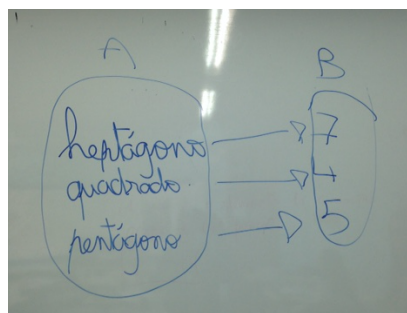 A B
heptágono 7
quadrado 4
pentágono 5